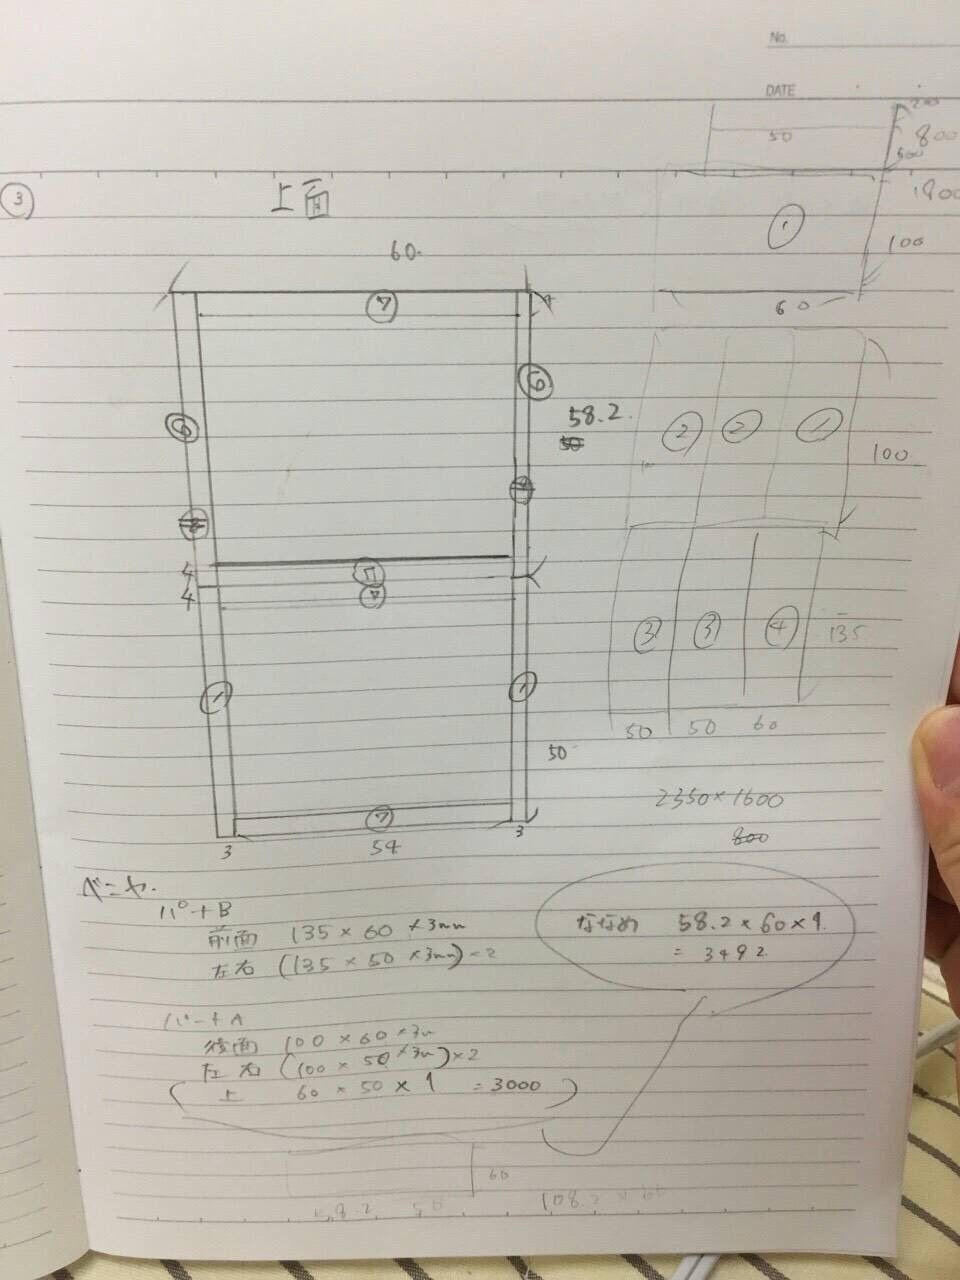 No.
DATE
50
200
800
500
1800
③
上面
①
100
60.
60
⑦
⑥
⑥
58.2.
50
② ② ①
100
4
4
⑦
① ①
③ ③ ④ 135
50 50 60
50
2350×1600
800
⑦
3 54 3
ベニヤ.
パートB
前面 135×60×3mm
左右 (135×50×3mm)×2
ななめ 58.2×60×1
=3492
パートA
後面 100×60×3m
左右 (100×50×3m)×2
上 60×50×1 =3000
60
58.2 50 108.2×60